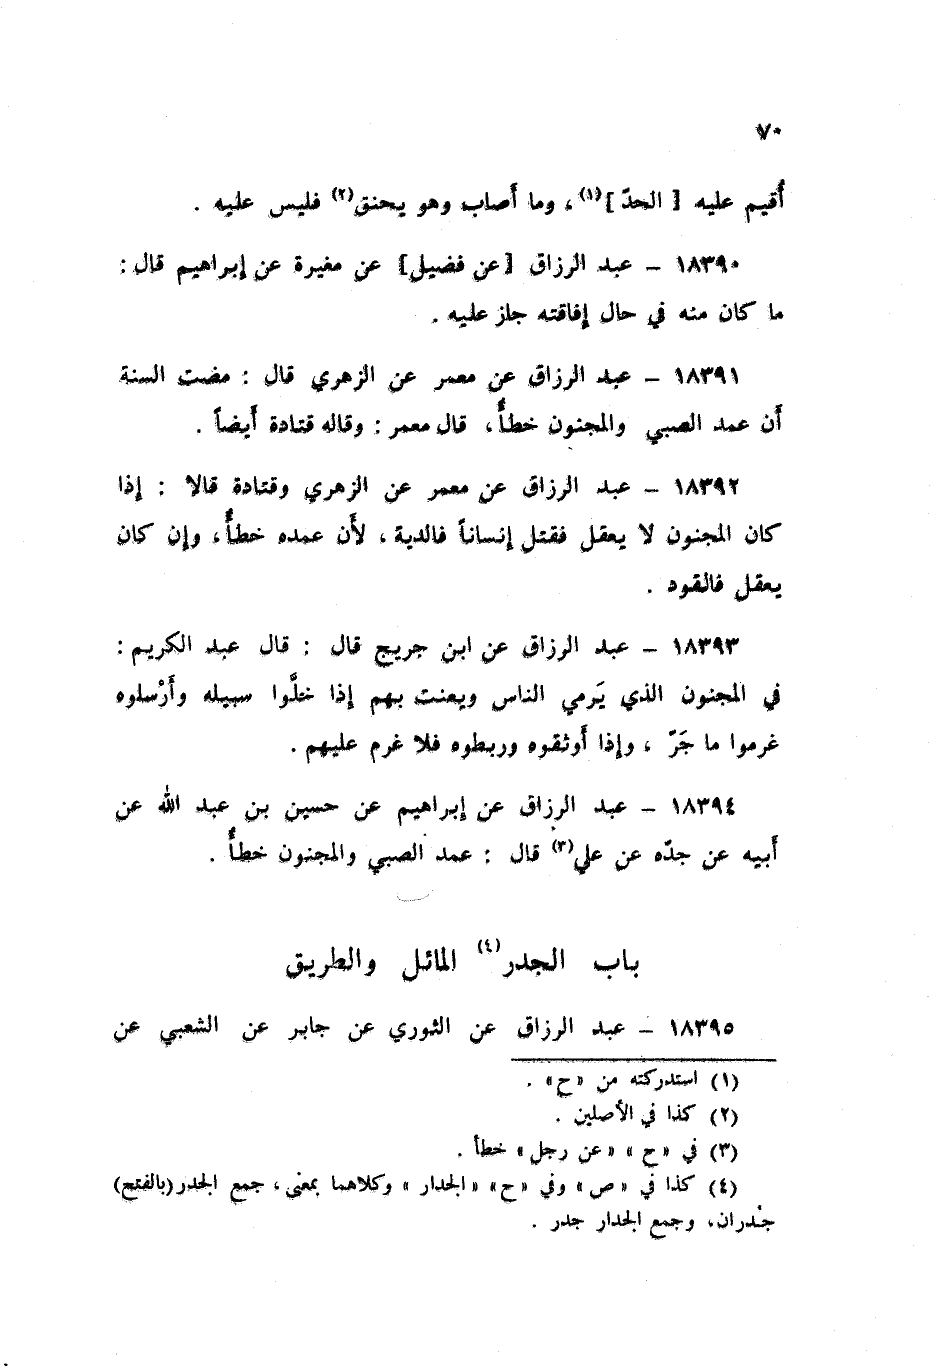 ٧٠
أُقيم عليه [ الحدّ ](١)، وما أَصاب وهو يحنق(٢) فليس عليه .
١٨٣٩٠ – عبد الرزاق [عن فضيل] عن مغيرة عن إبراهيم قال :
ما كان منه في حال إفاقته جاز عليه .
١٨٣٩١ – عبد الرزاق عن معمر عن الزهري قال : مضت السنة
أَن عمد الصبي والمجنون خطأٌ، قال معمر : وقاله قتادة أَيضاً .
١٨٣٩٢ – عبد الرزاق عن معمر عن الزهري وقتادة قالا : إذا
كان المجنون لا يعقل فقتل إنساناً فالدية ، لأَن عمده خطأٌ، وإن كان
يعقل فالقود .
١٨٣٩٣ – عبد الرزاق عن ابن جريج قال : قال عبد الكريم :
في المجنون الذي يَرمي الناس ويعنت بهم إذا خلَّوا سبيله وأَرْسلوه
غرموا ما جَرّ ، وإذا أَوثقوه وربطوه فلا غرم عليهم .
١٨٣٩٤ – عبد الرزاق عن إبراهيم عن حسين بن عبد الله عن
أَبيه عن جدّه عن علي(٣) قال : عمد الصبي والمجنون خطأٌ .
باب الجدر(٤) المائل والطريق
١٨٣٩٥ – عبد الرزاق عن الثوري عن جابر عن الشعبي عن
(١) استدركته من «ح» .
(٢) كذا في الأصلين .
(٣) في «ح» «عن رجل» خطأ .
(٤) كذا في «ص» وفي «ح» «الجدار» وكلاهما بمعنى، جمع الجدر(بالفتح)
جُدران، وجمع الجدار جدر .